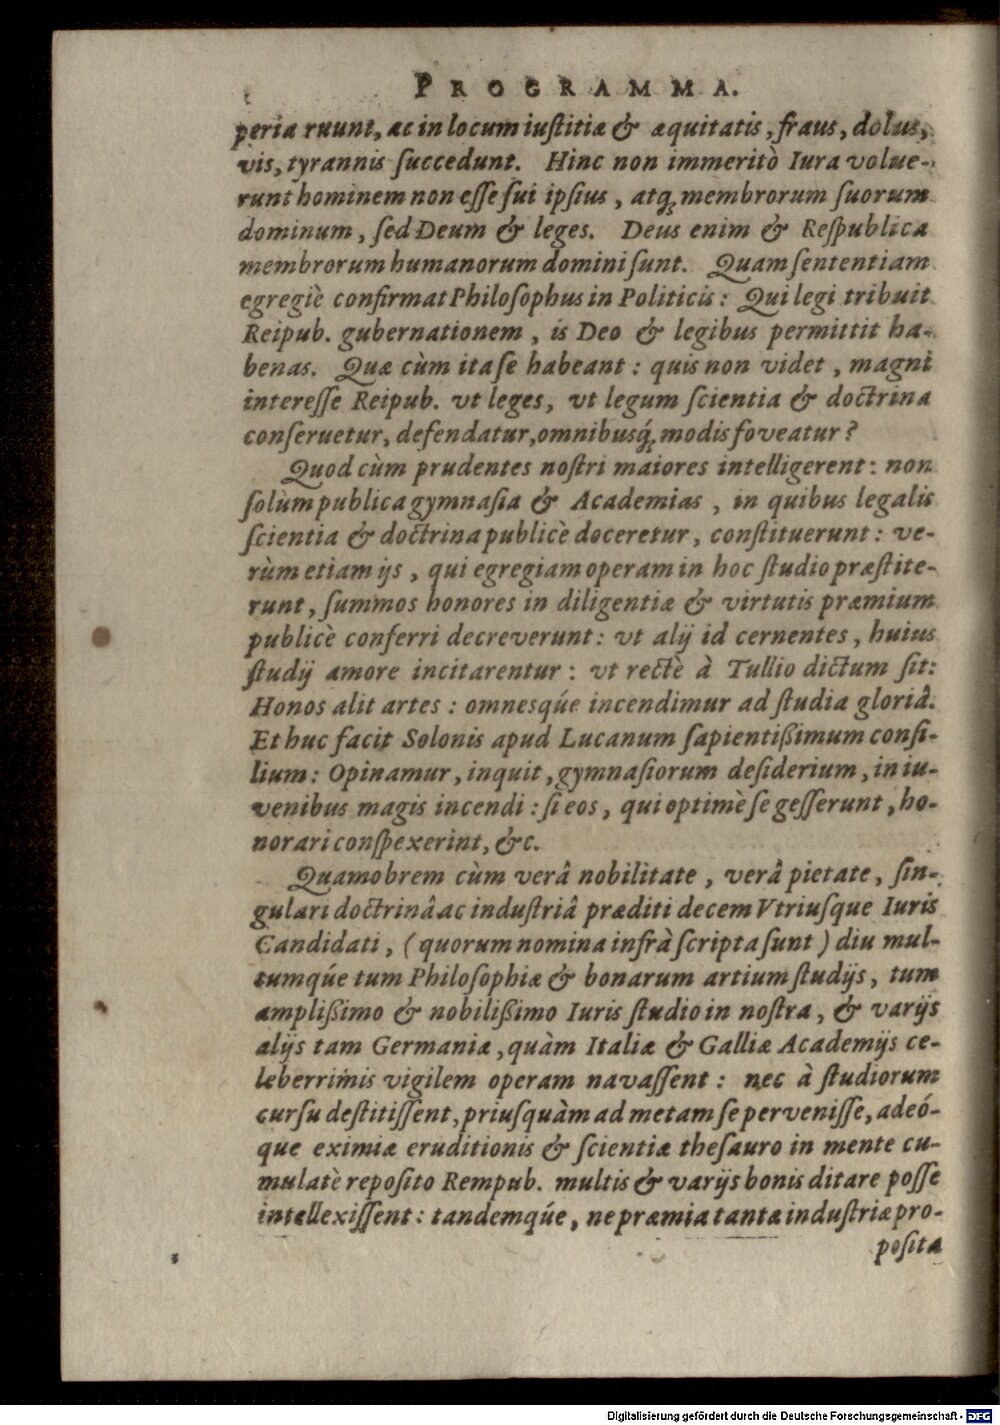 PROGRAMMA.
peria ruunt, ac in locum iustitiæ & æquitatis, fraus, dolus,
vis, tyrannis succedunt. Hinc non immeritò Iura volue-
runt hominem non esse sui ipsius, atq; membrorum suorum
dominum, sed Deum & leges. Deus enim & Respublica
membrorum humanorum domini sunt. Quam sententiam
egregiè confirmat Philosophus in Politicis: Qui legi tribuit
Reipub. gubernationem, is Deo & legibus permittit ha-
benas. Quæ cùm ita se habeant: quis non videt, magni
interesse Reipub. vt leges, vt legum scientia & doctrina
conseruetur, defendatur, omnibusq́; modis foveatur?
Quod cùm prudentes nostri maiores intelligerent: non
solùm publica gymnasia & Academias, in quibus legalis
scientia & doctrina publicè doceretur, constituerunt: ve-
rùm etiam ijs, qui egregiam operam in hoc studio præstite-
runt, summos honores in diligentiæ & virtutis præmium
publicè conferri decreverunt: vt alij id cernentes, huius
studij amore incitarentur: vt rectè à Tullio dictum sit:
Honos alit artes: omnesqúe incendimur ad studia gloriâ.
Et huc facit Solonis apud Lucanum sapientißimum consi-
lium: Opinamur, inquit, gymnasiorum desiderium, in iu-
venibus magis incendi: si eos, qui optimè se gesserunt, ho-
norari conspexerint, &c.
Quamobrem cùm verâ nobilitate, verâ pietate, sin-
gulari doctrinâ ac industriâ præditi decem Vtriusque Iuris
Candidati, (quorum nomina infrà scripta sunt) diu mul-
tumqúe tum Philosophiæ & bonarum artium studijs, tum
amplißimo & nobilißimo Iuris studio in nostra, & varijs
alijs tam Germaniæ, quàm Italiæ & Galliæ Academijs ce-
leberrimis vigilem operam navassent: nec à studiorum
cursu destitissent, priusquàm ad metam se pervenisse, adeó-
que eximiæ eruditionis & scientiæ thesauro in mente cu-
mulatè reposito Rempub. multis & varijs bonis ditare posse
intellexissent: tandemqúe, ne præmia tanta industriæ pro-
posita
Digitalisierung gefördert durch die Deutsche Forschungsgemeinschaft - DFG